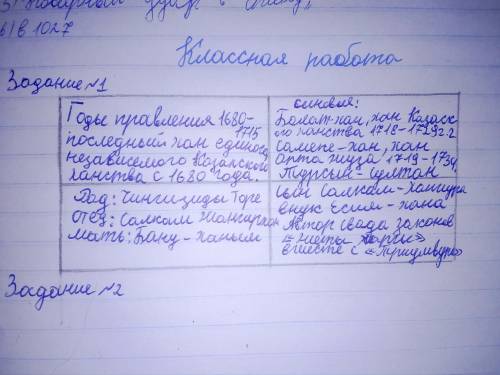 5) Пожарный удар в
6) в 1027
Классная работа
Задание №1
Годы правления 1680-
1715
последний хан единого
независимого Казахского
ханства с 1680 года.
сыновья:
Болат-хан, хан Казахс
кого ханства 1718-
Самеке-хан, хан
Орта жуза 1719-1734,
Турсын-Султан
Род: Чингизиды Торе
отец: Салкам Жангирхан
мать: Бану-ханым
Сын Салкам-Жангира
внук Есим-хана
Автор Свода законов
«Жеты Жаргы»
вместе с «Триумвиратом»
Задание №2